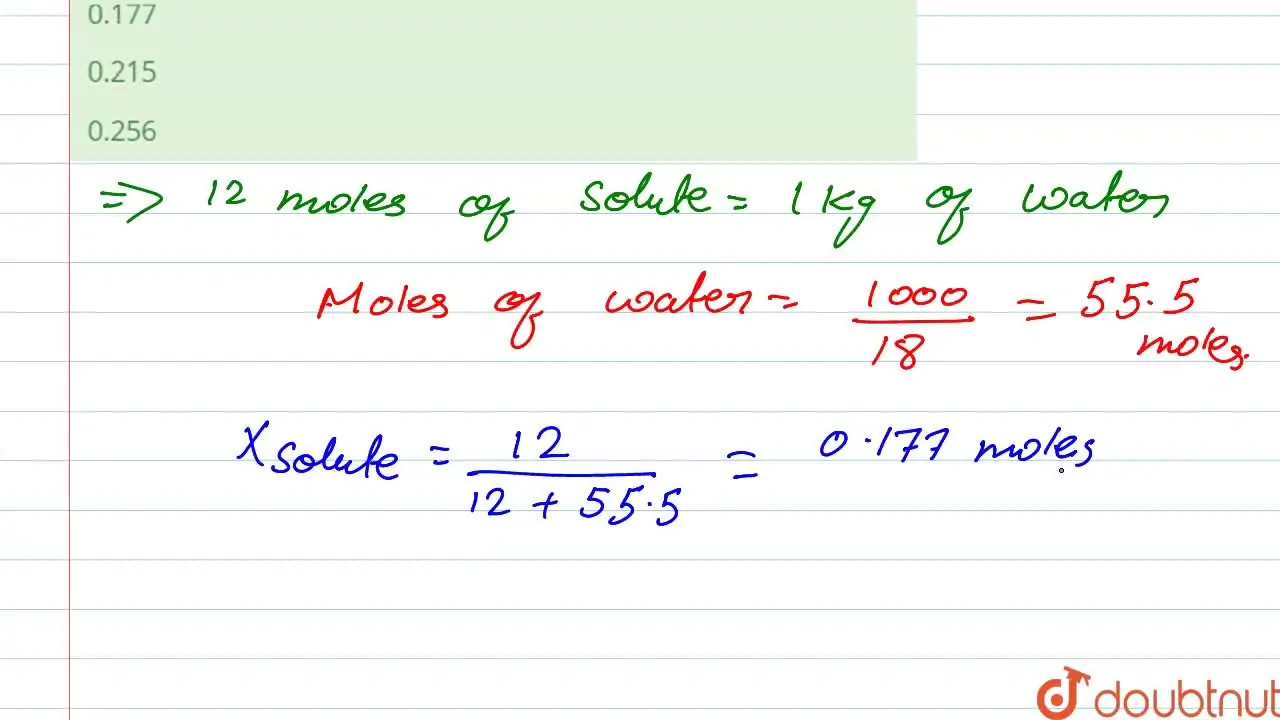 0.177
0.215
0.256
=> 12 moles of solute = 1 kg of water
Moles of water = 1000/18 = 55.5 moles.
X solute = 12/(12 + 55.5) = 0.177 moles
doubtnut